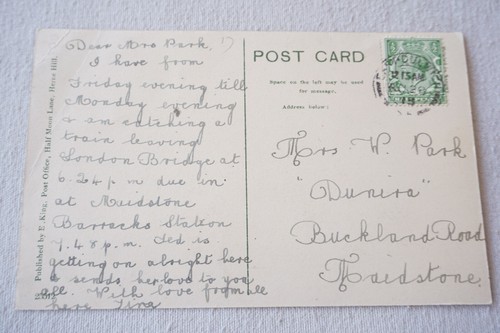 Dear Mrs Park,
I have from
Friday evening till
Monday evening
& am catching a
train leaving
London Bridge at
6.24 p m due in
at Maidstone
Barracks Station
7.48 p.m. Ted is
getting on alright here
& sends her love to you
all. With love from all
here
Published by E. King, Post Office, Half Moon Lane, Herne Hill.
POST CARD
Space on the left may be used
for message.
Address below:
Mrs W. Park
"Dunira"
Buckland Road
Maidstone.
12 15 AM